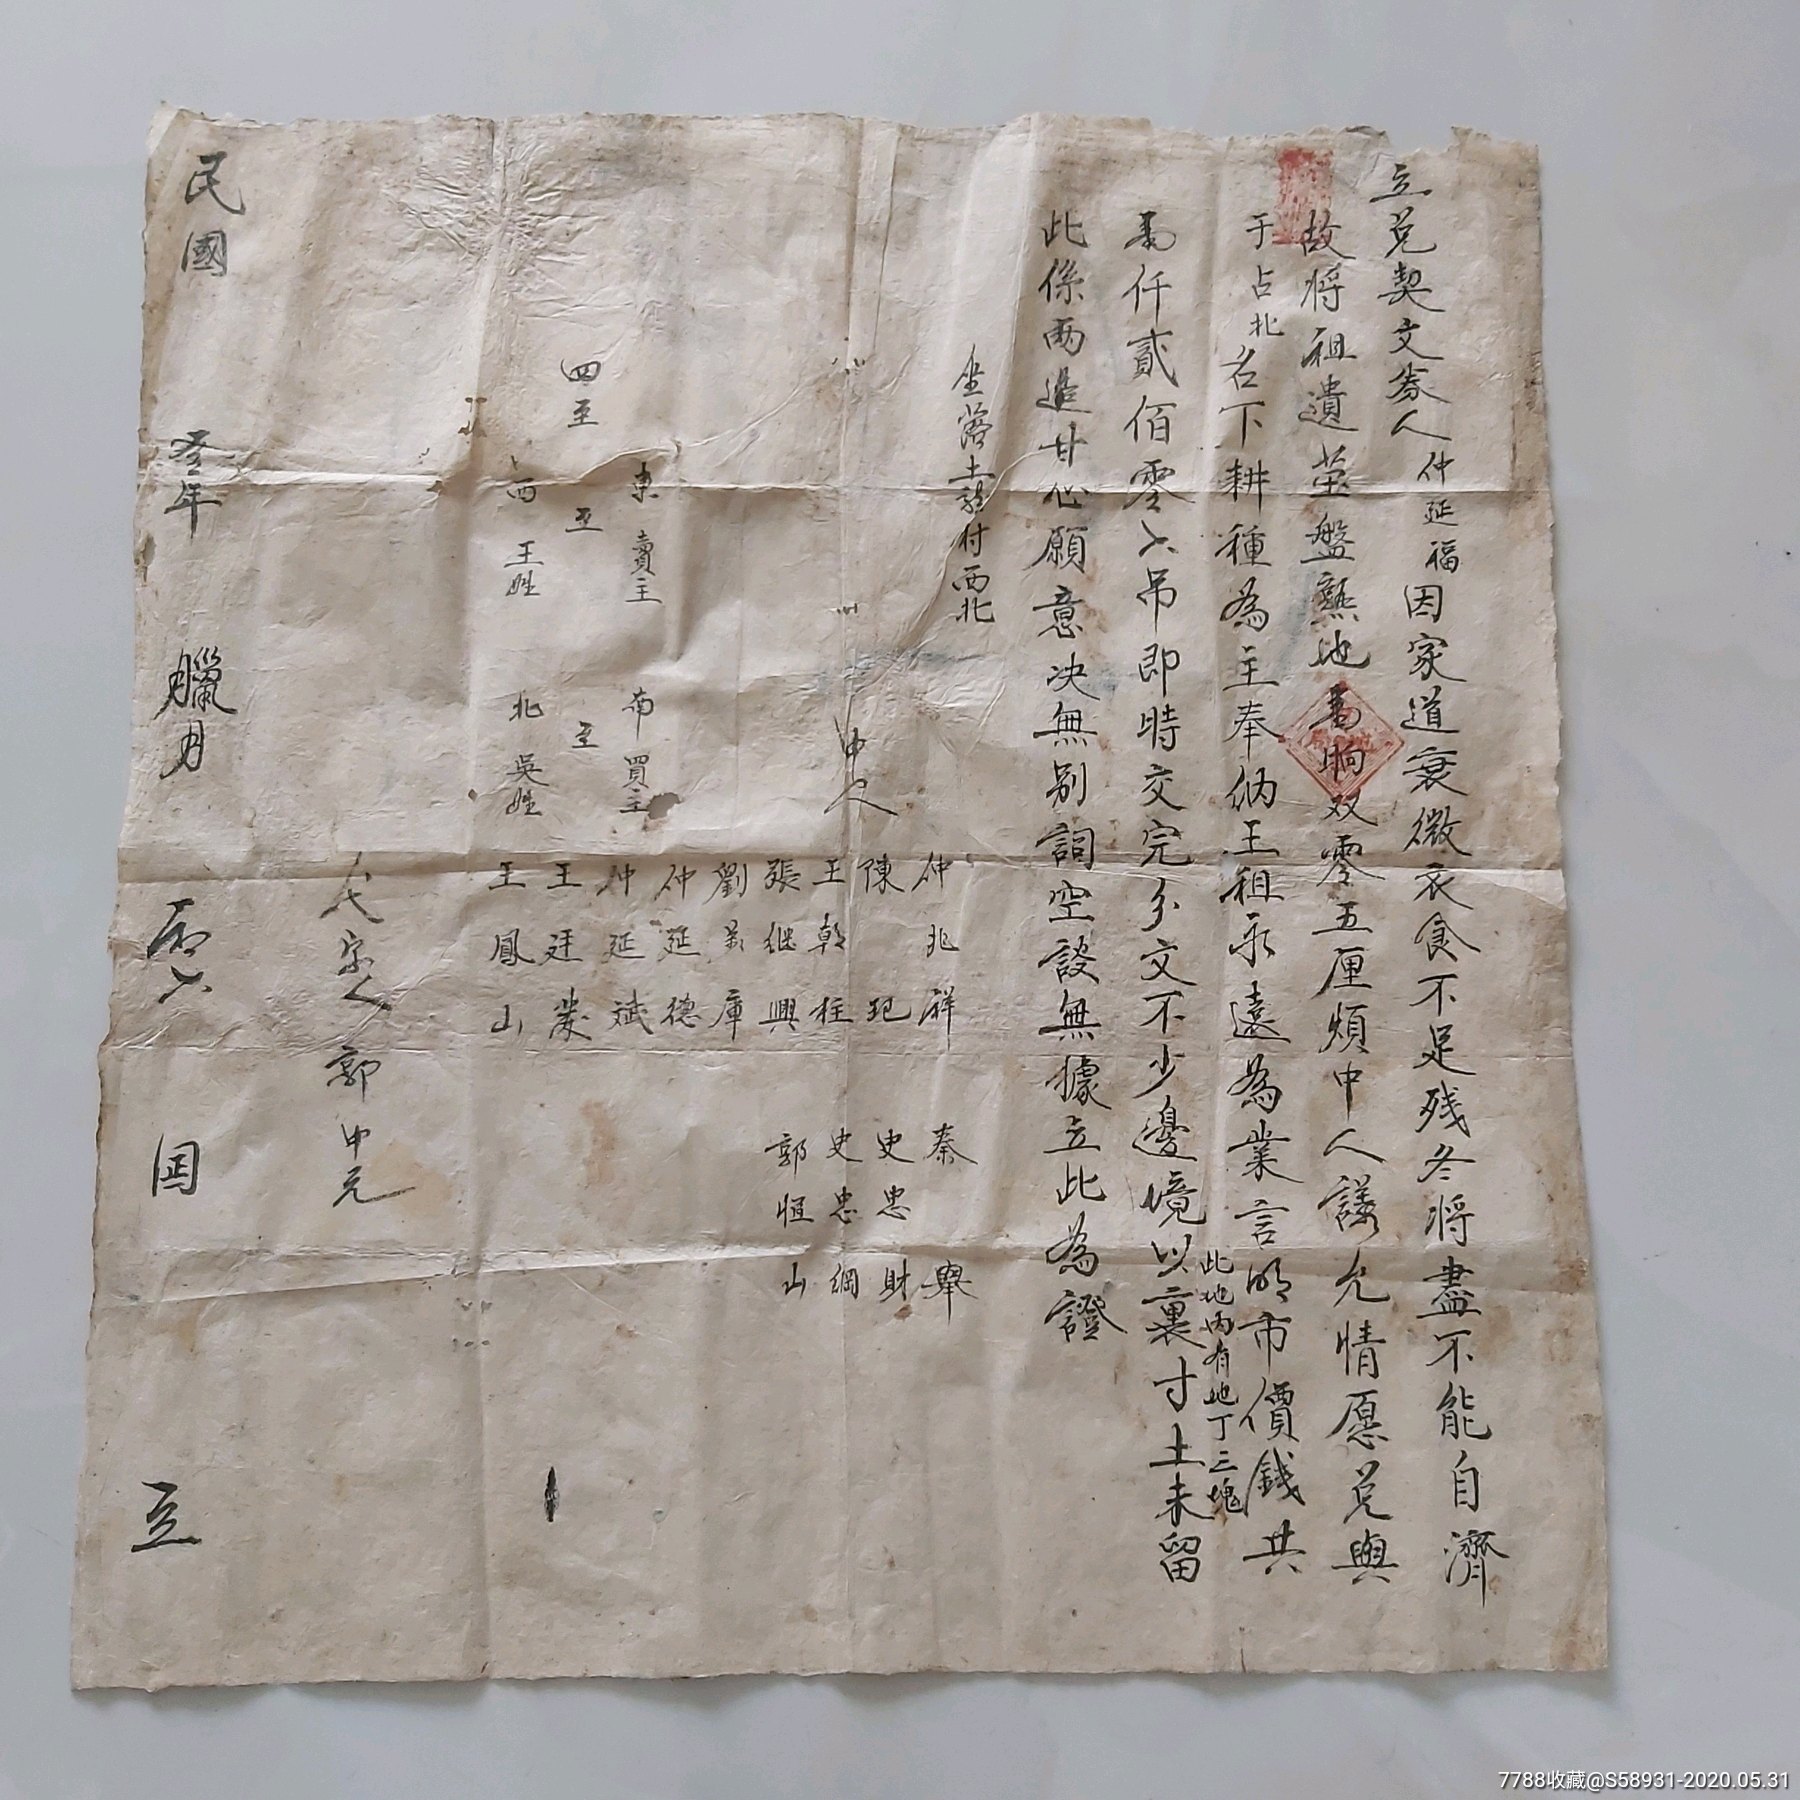 立兑契文券人仲延福因家道衰微衣食不足残冬將盡不能自濟
故將祖遺茔盤熟地晌双零五厘煩中人議允情愿兑與
于占北名下耕種為主奉納王租永遠為業言明市價錢共
仟貳佰零六吊即時交完分文不少邊境以裏寸土未留
此地内有地丁三塊
此係两造甘心願意决無别詞空説無據立此為證
坐落土龍村西北
中人
仲兆祥 秦舉
陳玘 史忠財
王朝柱 史忠綱
張继興 郭恒山
劉庫
仲延德
仲延斌
王廷
王鳳山
四至
東至賣主 南至買主
西至王姓 北至吳姓
代字人 郭中元
民國 年 臘月 六 日 立
7788收藏@S58931-2020.05.31